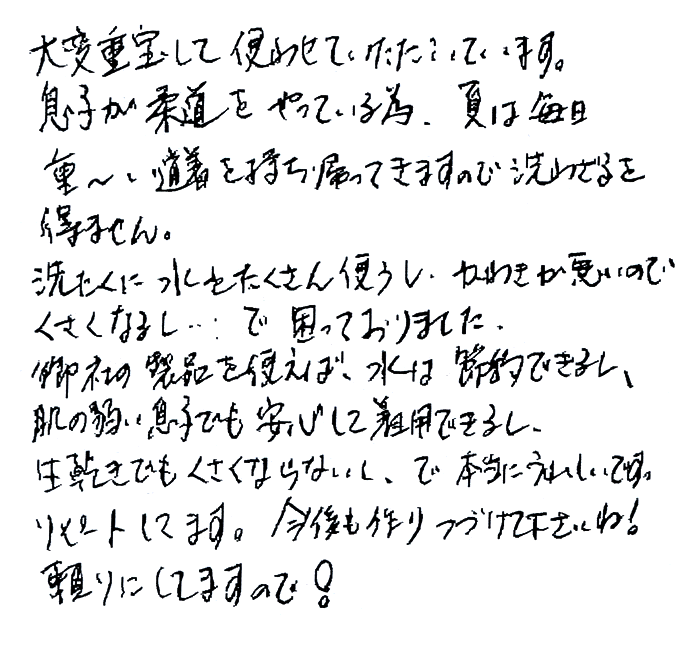 大変重宝して使わせていただいています。
息子が柔道をやっている為、夏は毎日
重〜い道着を持ち帰ってきますので洗わざるを
得ません。
洗たくに水をたくさん使うし、かわきが悪いので
くさくなるし…で困っておりました。
御社の製品を使えば、水は節約できるし、
肌の弱い息子でも安心して着用できるし、
生乾きでもくさくならないし、で本当にうれしいです。
リピートしてます。今後も作りつづけて下さいね!
頼りにしてますので!